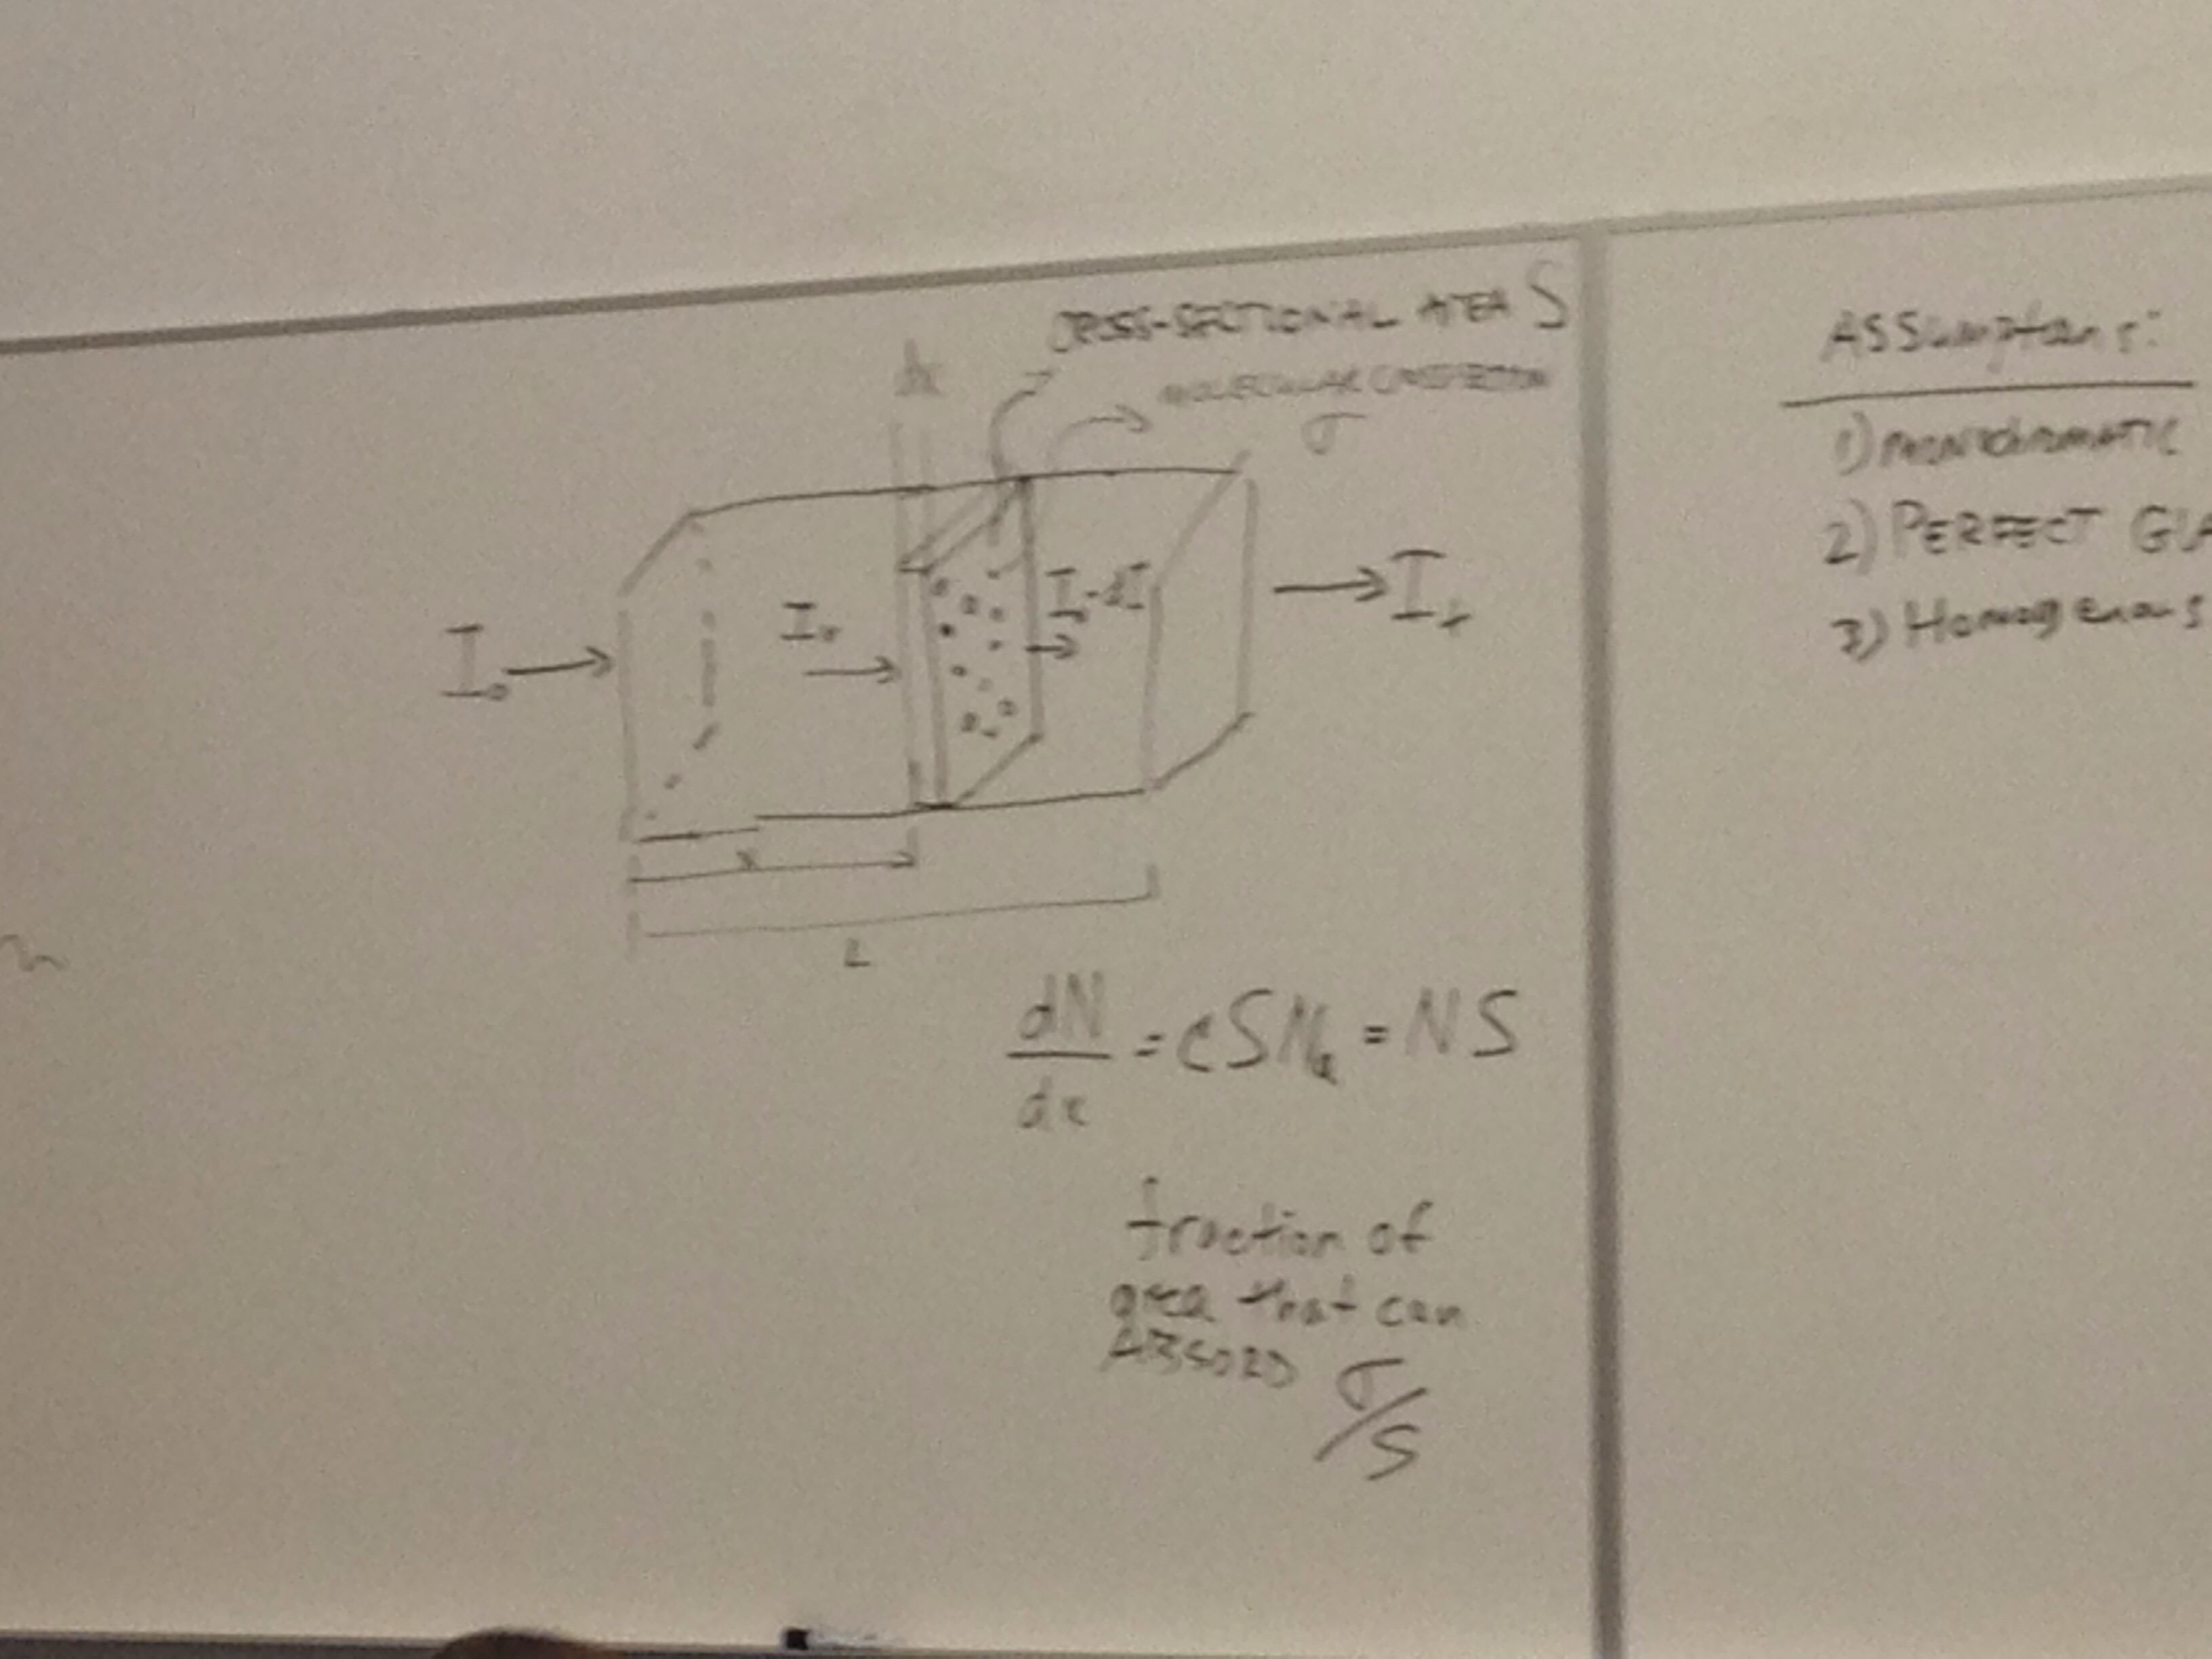 CROSS-SECTIONAL AREA S
dx
MOLECULAR
σ
I₀ → I₀ → I₀-dI → I_t
x
L
dN/dx = cSNₐ = NS
fraction of
area that can
ABSORB σ/S
Assumptions:
1) monochromatic
2) PERFECT GLA
3) Homogenous